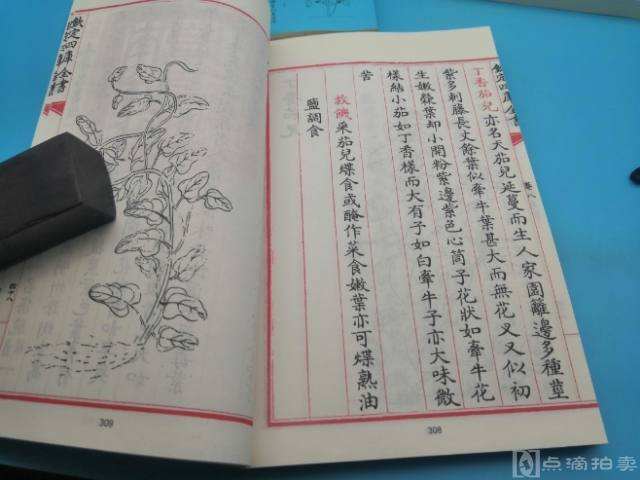 欽定四庫全書
卷八
丁香茄兒亦名天茄兒延蔓而生人家園籬邊多種莖
紫多刺藤長丈餘葉似牽牛葉甚大而無花叉又似初
生嫩檾葉却小開粉紫邊紫色心筒子花狀如牽牛花
樣結小茄如丁香樣而大有子如白牽牛子亦大味微
苦
救饑采茄兒煠食或醃作菜食嫩葉亦可煠熟油
鹽調食
308
欽定四庫全書
卷八
309
点滴拍卖